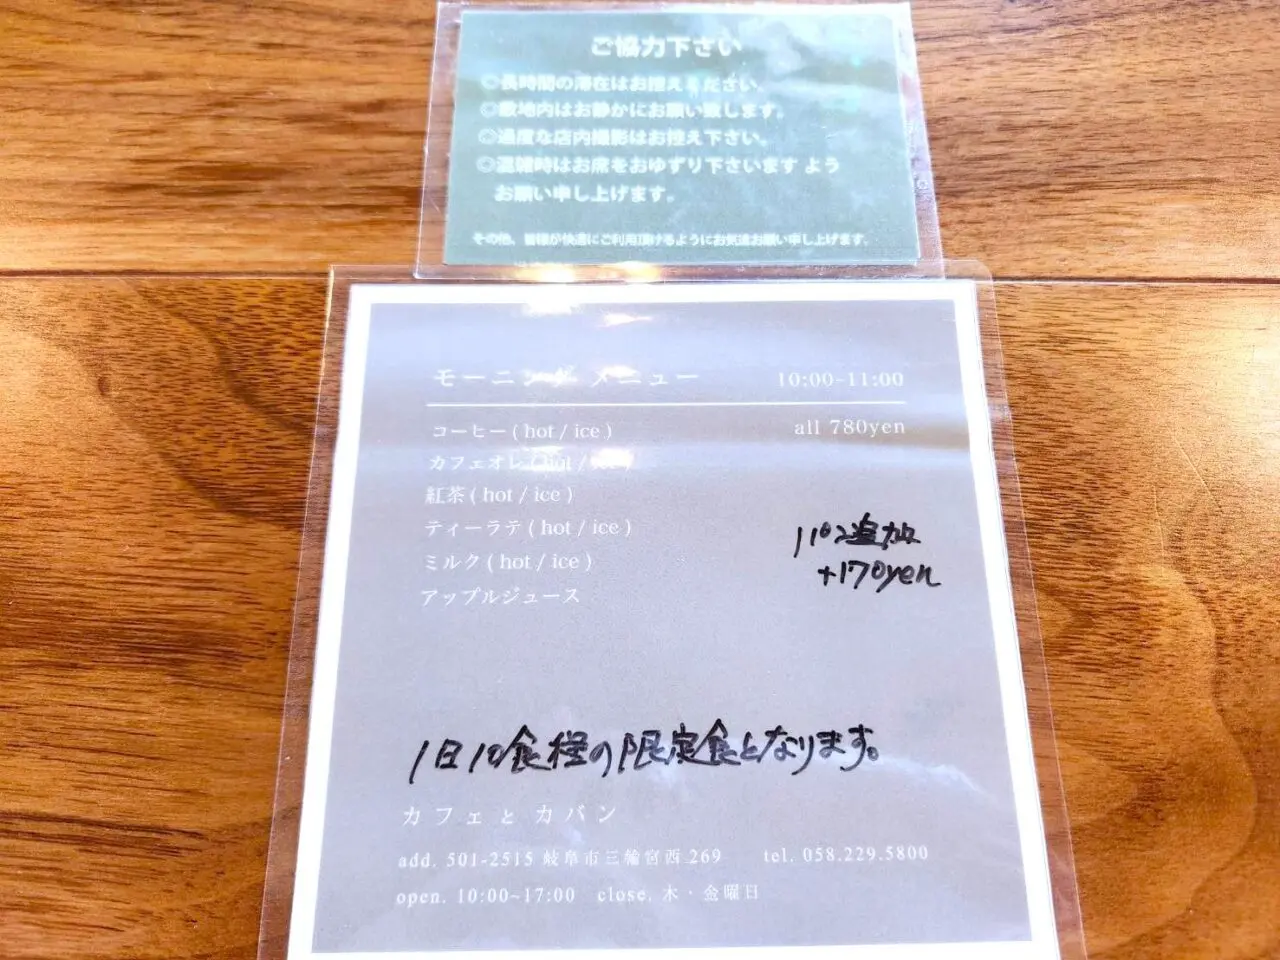 ご協力下さい
◎長時間の滞在はお控えください。
◎敷地内はお静かにお願い致します。
◎過度な店内撮影はお控え下さい。
◎混雑時はお席をおゆずり下さいます よう
お願い申し上げます。
その他、皆様が快適にご利用頂けるようにお気遣お願い申し上げます。
モーニング メニュー 10:00-11:00
コーヒー ( hot / ice ) all 780yen
カフェオレ ( hot / ice )
紅茶 ( hot / ice )
ティーラテ ( hot / ice )
ミルク ( hot / ice )
アップルジュース
パン追加
+170yen
1日10食程の限定食となります。
カフェとカバン
add. 501-2515 岐阜市三輪宮西 269 tel. 058.229.5800
open. 10:00~17:00 close. 木・金曜日